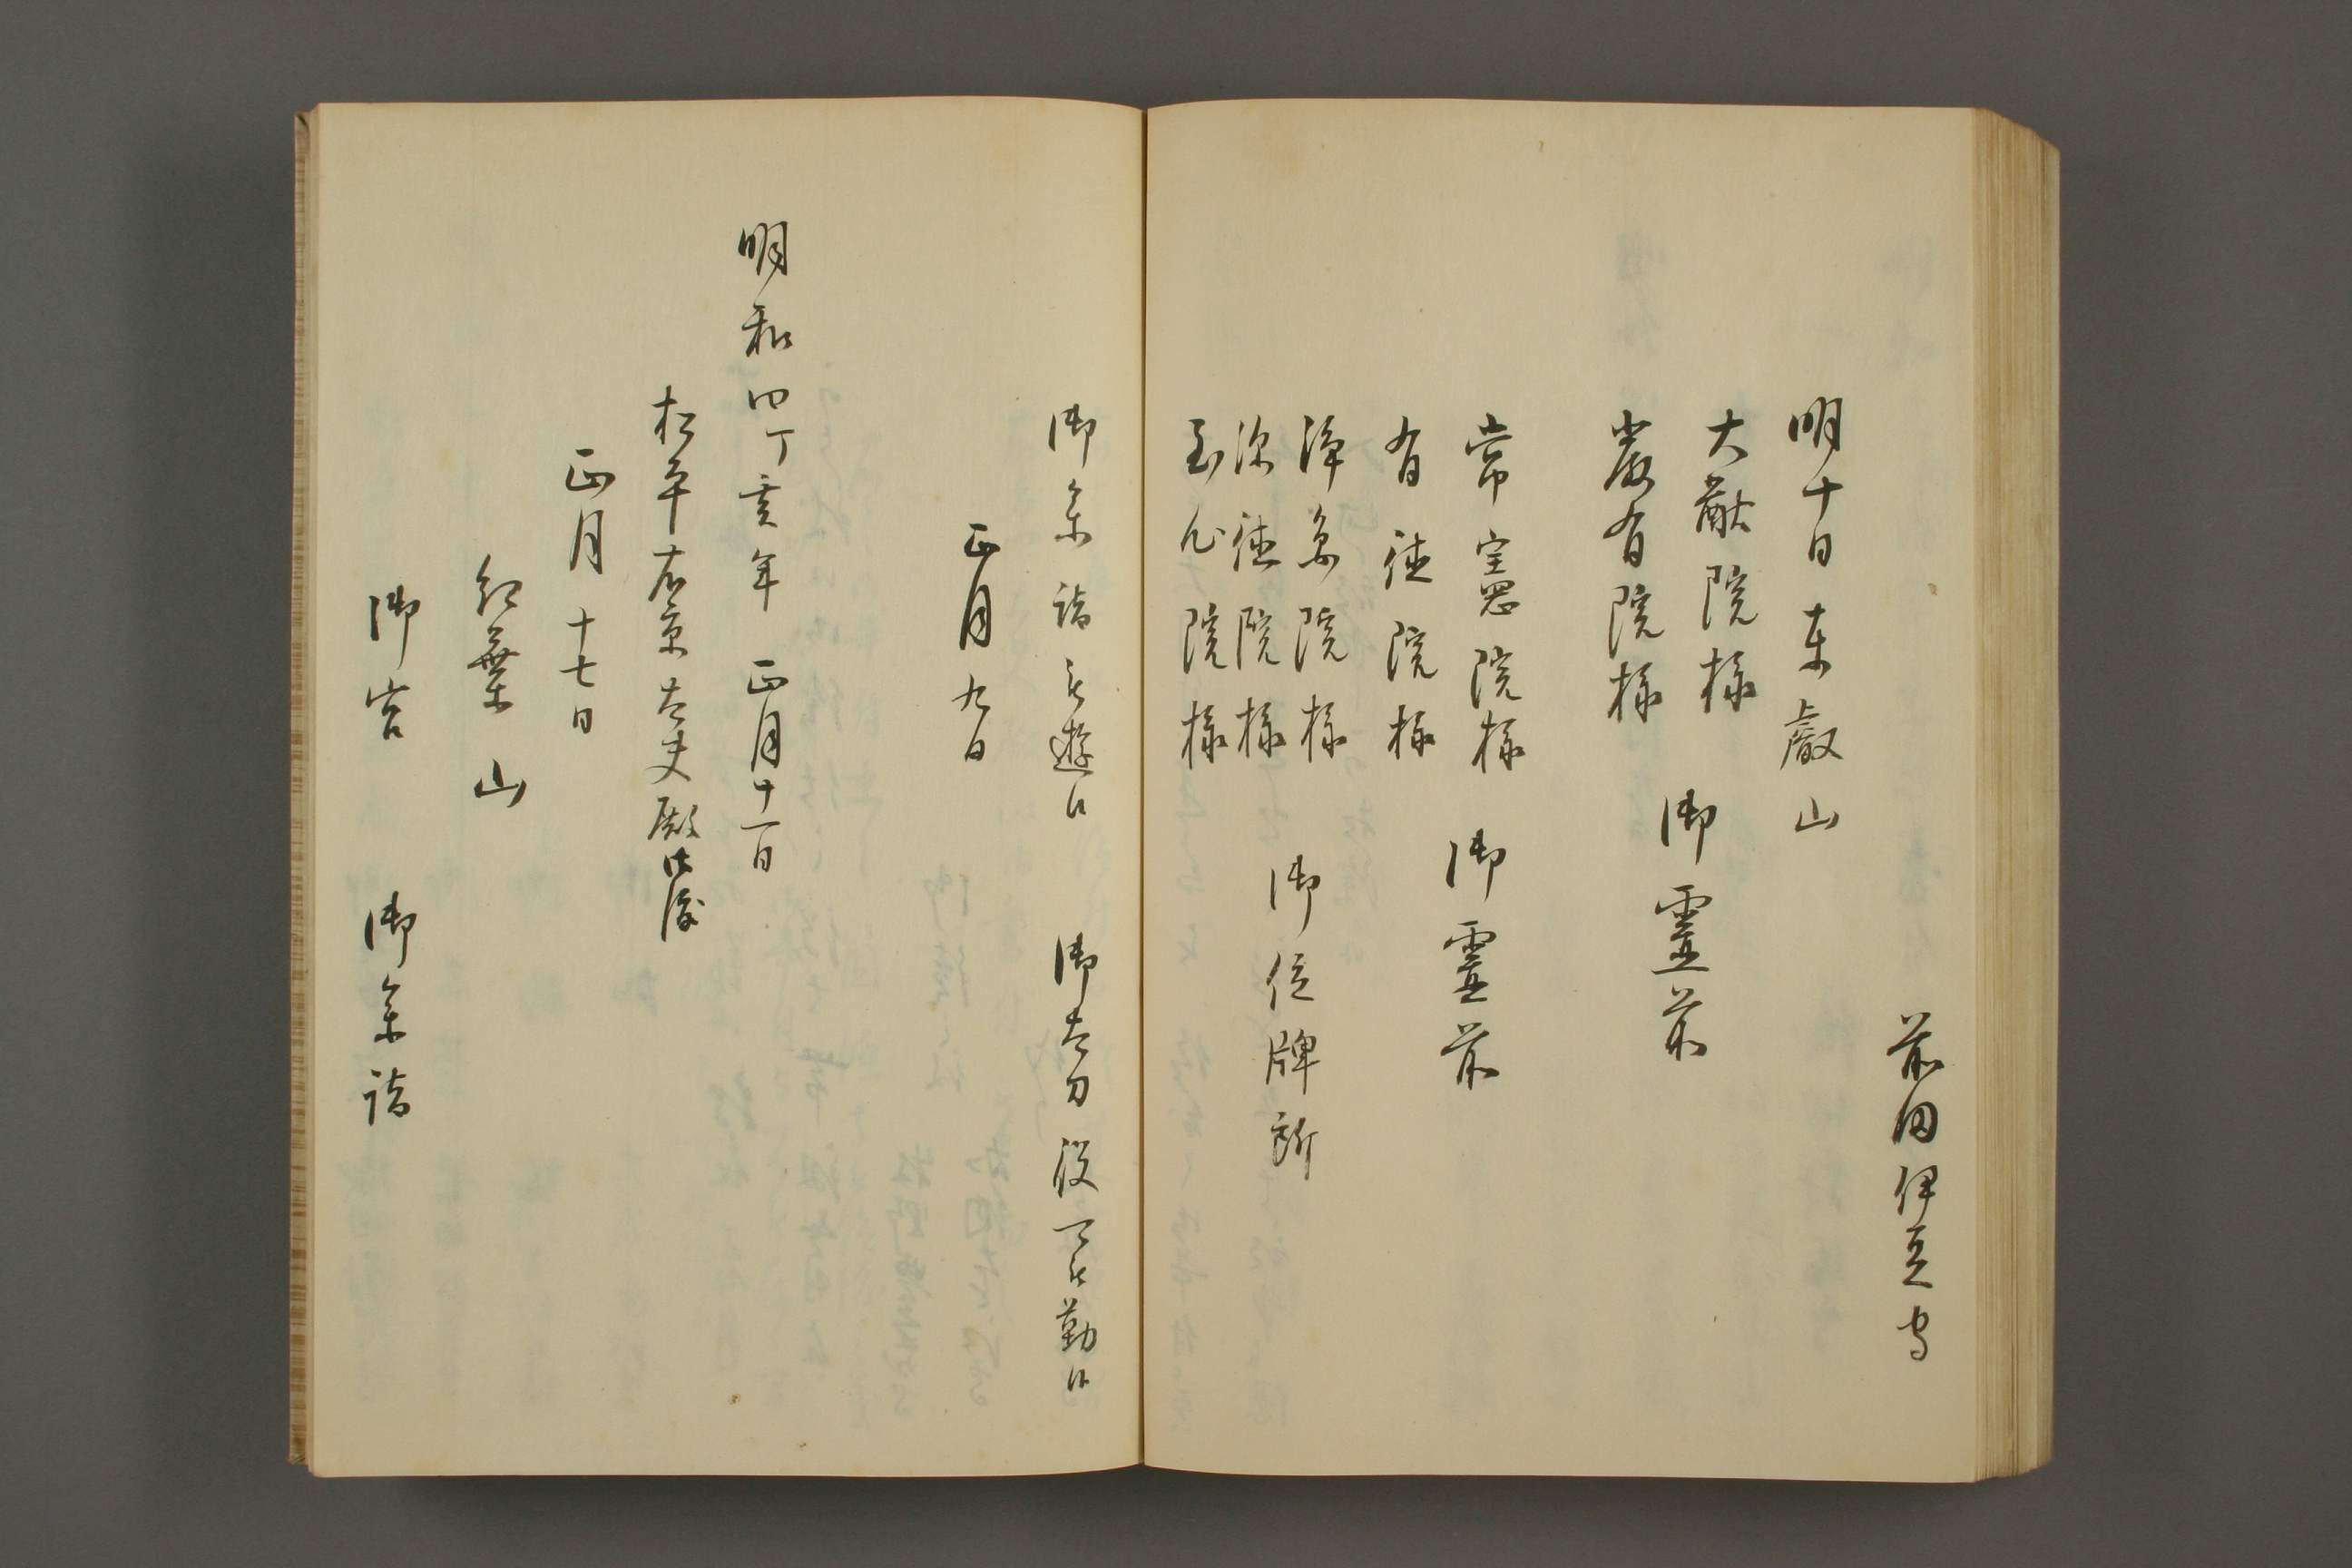 前田伊豆守
明十日東叡山
大猷院様
御霊前
厳有院様
常憲院様
御霊前
有徳院様
浄圓院様
深徳院様 御位牌所
至心院様
御参詣被遊候 御太刀役可被勤候
正月九日
明和四丁亥年 正月十一日
松平右京太夫殿御渡
正月十七日
紅葉山
御宮 御参詣